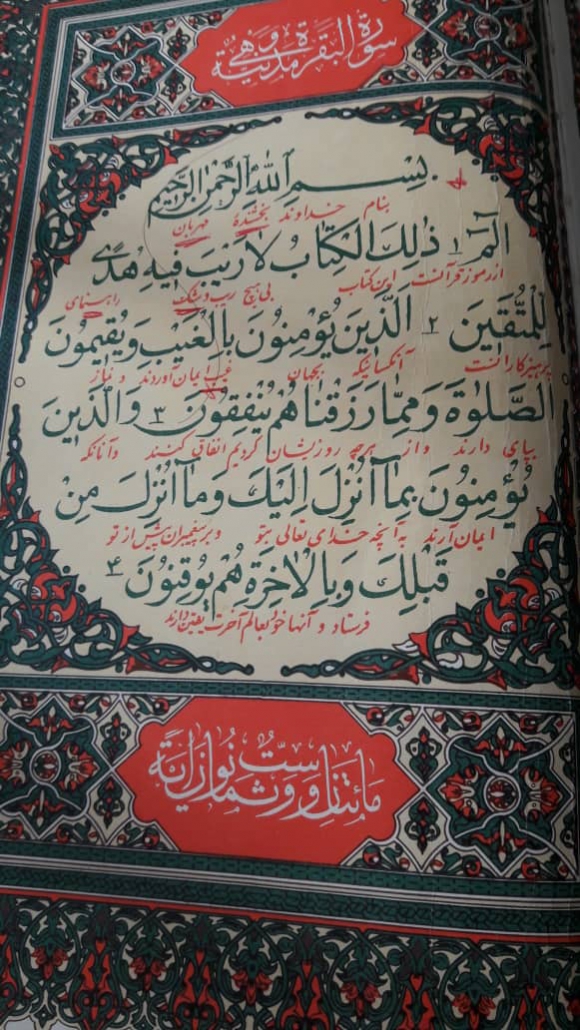 سورة البقرة وهي مدنية
بِسْمِ اللهِ الرَّحْمٰنِ الرَّحِيمِ
بنام خداوند بخشندهٔ مهربان
الٓمٓ ١ ذٰلِكَ الْكِتَابُ لَا رَيْبَ فِيهِ هُدًى
از رموز قرآنست این کتاب بی هیچ ریب و شک راهنمای
لِلْمُتَّقِينَ ٢ اَلَّذِينَ يُؤْمِنُونَ بِالْغَيْبِ وَيُقِيمُونَ
پرهیزکارانست آنکسانیکه بجهان غیب ایمان آوردند و نماز
الصَّلٰوةَ وَمِمَّا رَزَقْنَاهُمْ يُنْفِقُونَ ٣ وَالَّذِينَ
بپای دارند و از هرچه روزیشان کردیم انفاق کنند و آنانکه
يُؤْمِنُونَ بِمَآ اُنْزِلَ اِلَيْكَ وَمَآ اُنْزِلَ مِنْ
ایمان آرند به آنچه خدای تعالی بتو و بر پیغمبران پیش از تو
قَبْلِكَ وَبِالْاٰخِرَةِ هُمْ يُوقِنُونَ ۴
فرستاد و آنها خود بعالم آخرت یقین دارند
مائتان وست وثمانون اية